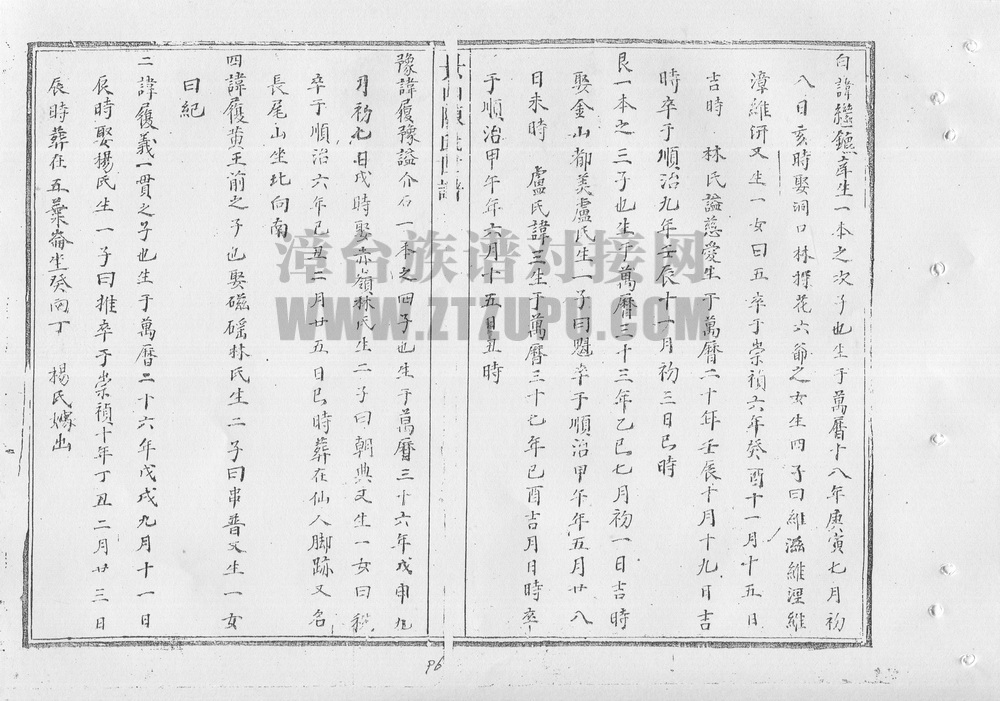 諱繼鑣庠生一本之次子也生于萬曆十八年庚寅七月初
八日亥時娶洞口林探花六爺之女生四子曰維滋維浬維
漳維汧又生一女曰五卒于崇禎六年癸酉十一月十五日
吉時 林氏謚慈愛生于萬曆二十年壬辰十月十九日吉
時卒于順治九年壬辰十一月初三日巳時
良一本之三子也生于萬曆三十三年乙巳七月初一日吉時
娶金山都美盧氏生一子曰魁卒于順治甲午年五月廿八
日未時 盧氏諱三生于萬曆三十七年己酉吉月日時卒
于順治甲午年六月十五日丑時
陳氏世譜
豫諱履豫謚介石一本之四子也生于萬曆三十六年戊申九
月初七日戌時娶赤嶺林氏生二子曰朝典又生一女曰
卒于順治六年己丑二月廿五日巳時葬在仙人脚跡又名
長尾山坐北向南
四諱履黄王前之子也娶磁磘林氏生二子曰串普又生一女
曰紀
二諱履義一貫之子也生于萬曆二十六年戊戌九月十一日
辰時娶楊氏生一子曰推卒于崇禎十年丁丑二月廿三日
辰時葬在五藔崙坐癸向丁 楊氏嫁出
96
漳台族谱对接网
WWW.ZTZUPU.COM